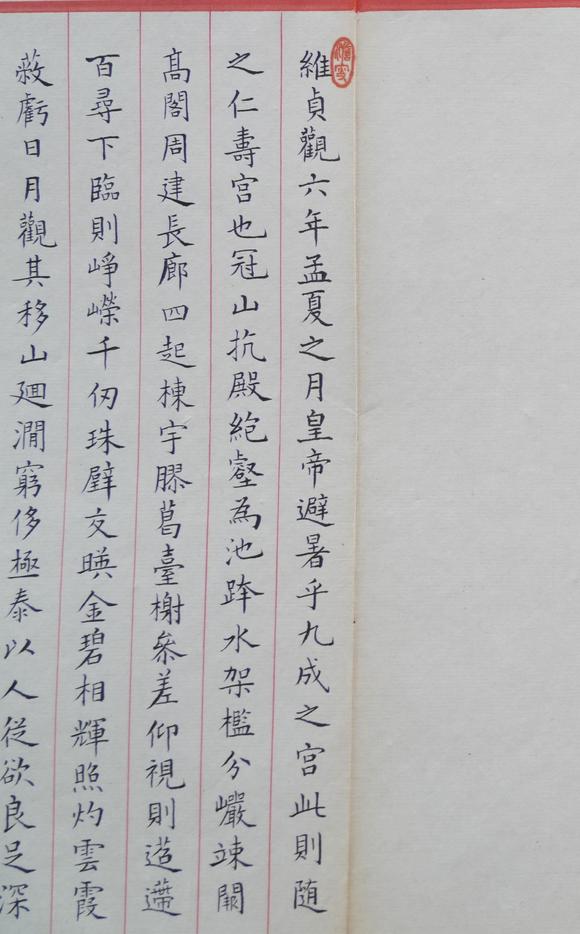 維貞觀六年孟夏之月皇帝避暑乎九成之宮此則隨
之仁壽宮也冠山抗殿絶壑為池跨水架楹分巖竦闕
高閣周建長廊四起棟宇膠葛臺榭參差仰視則迢遰
百尋下臨則崢嶸千仞珠璧交暎金碧相輝照灼雲霞
蔽虧日月觀其移山迴澗窮侈極泰以人從欲良足深